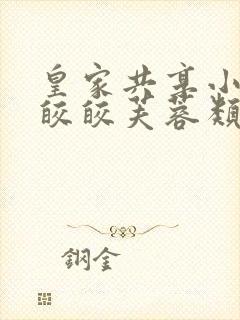 皇家共享小
皎皎芙蓉類
鋼金